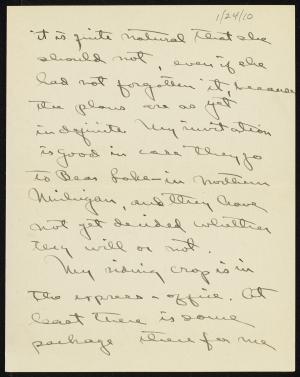 1/24/10
it is quite natural that she
should not, even if she
had not forgotten it, because
the plans are as yet
indefinite. My invitation
is good in case they go
to Bear Lake in northern
Michigan, and they have
not yet decided whether
they will or not.
My riding crop is in
the express-office. At
least there is some
package there for me